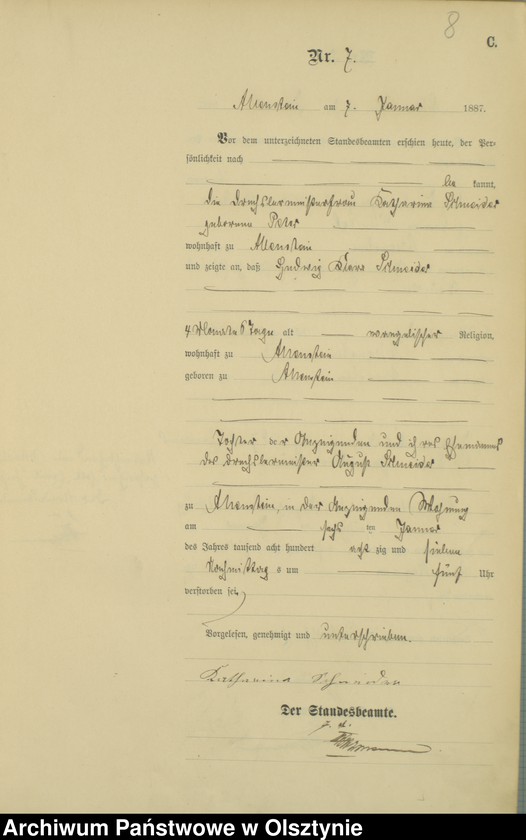 8
C.
Nr. 7.
Allenstein am 7. Januar 1887.
Vor dem unterzeichneten Standesbeamten erschien heute, der Per-
sönlichkeit nach
be kannt,
die Drechslermeisterfrau Katharina Schneider
geborene Peter
wohnhaft zu Allenstein
und zeigte an, daß Hedwig Klara Schneider
4 Monate 6 Tage alt evangelischer Religion,
wohnhaft zu Allenstein
geboren zu Allenstein
Tochter der Anzeigenden und ihres Ehemannes
des Drechslermeister August Schneider
zu Allenstein, in der Anzeigenden Wohnung
am sechs ten Januar
des Jahres tausend acht hundert acht zig und sieben
Nachmittag s um fünf Uhr
verstorben sei.
Vorgelesen, genehmigt und unterschrieben.
Katharina Schneider
Der Standesbeamte.
Archiwum Państwowe w Olsztynie